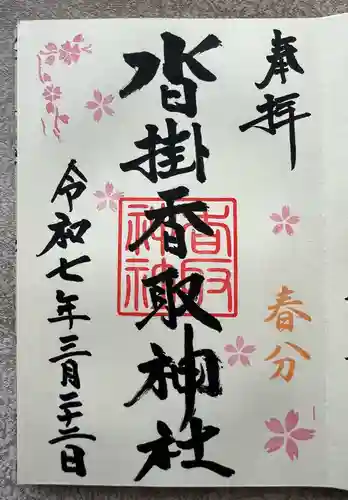 奉拝
春分
沓掛香取神社
香取
神社
令和七年三月二十二日